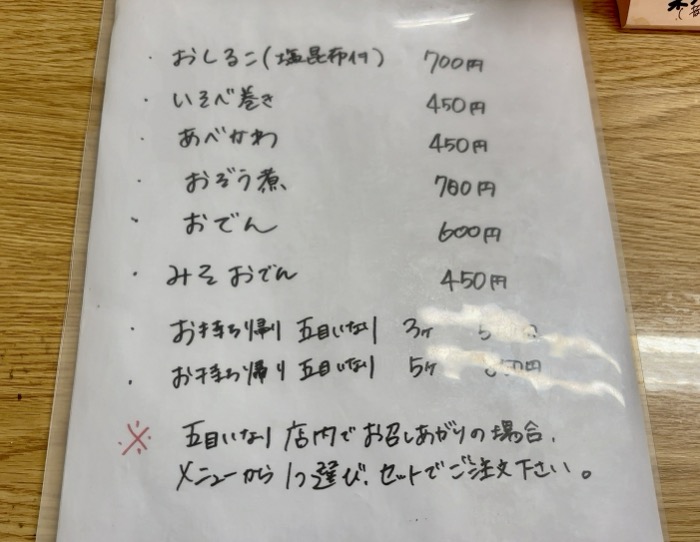 ・ おしるこ(塩昆布付) 700円
・ いそべ巻き 450円
・ あべかわ 450円
・ おぞう煮 780円
・ おでん 600円
・ みそおでん 450円
・ お持ち帰り 五目いなり 3ヶ
・ お持ち帰り 五目いなり 5ヶ
※ 五目いなり店内でお召しあがりの場合、
メニューから1つ選び、セットでご注文下さい。